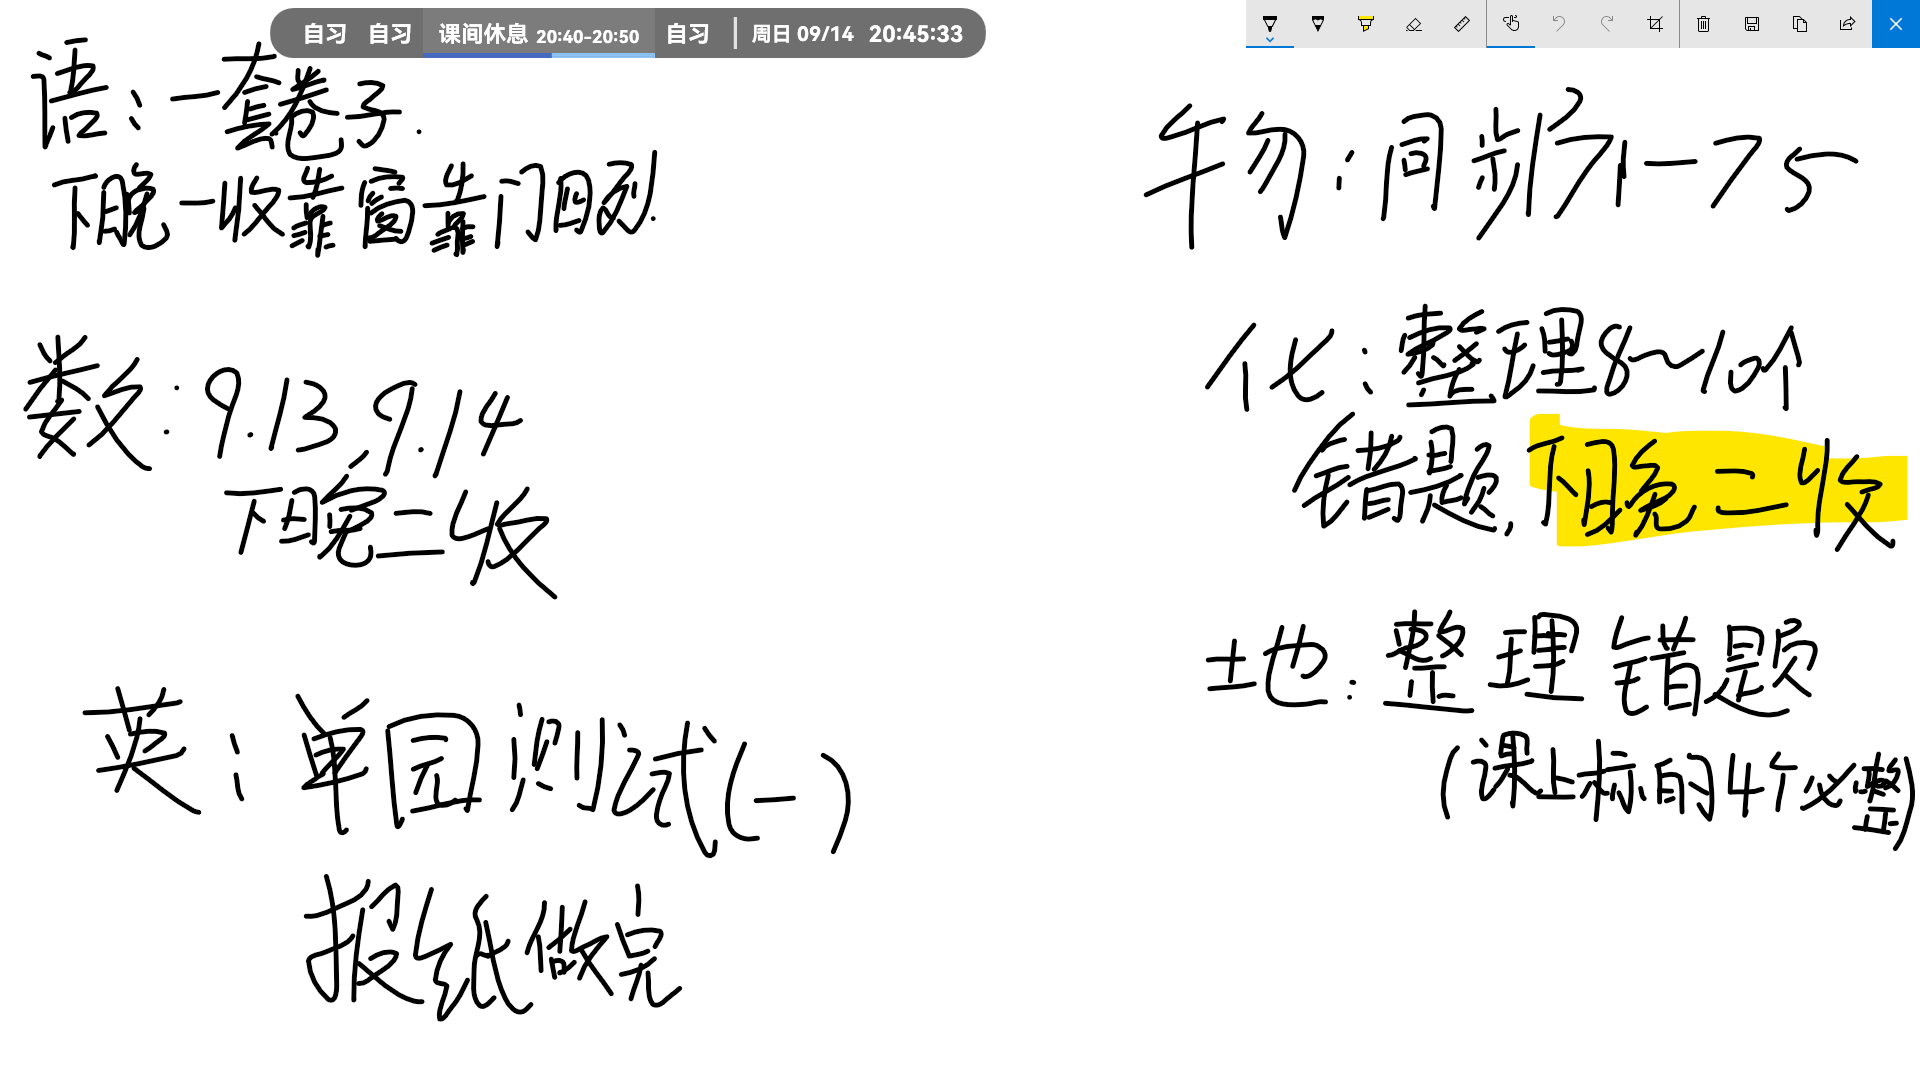 自习 自习 课间休息 20:40-20:50 自习 周日 09/14 20:45:33
语：一套卷子.
下晚一收靠窗靠门四列.
数：9.13, 9.14
下晚二收
英：单园测试(一)
报纸做完
物：同步P71-75
化：整理8~10个
错题,下晚二收
地：整理错题
(课上标的4个必整)